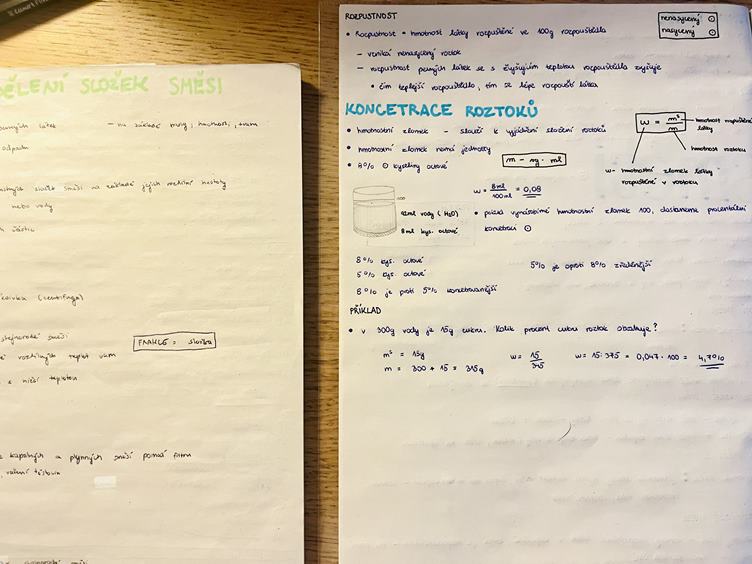 DĚLENÍ SLOŽEK SMĚSI
látek – na základě barvy, hustoti, tvaru
odpadu
složek směsi na základě jejich rozdílné hustoty
nebo vody
částic
(centrifuga)
stejnorodé směsi
rozdílných teplot varu
FRAKCE = složka
s nižší teplotou
kapalných a plynných směsí pomocí filtru
vaření těstovin
směsi
ROZPUSTNOST
nenasycený ⊙
nasycený ⊙
• Rozpustnost = hmotnost látky rozpuštěné ve 100g rozpouštědla
– vzniká nenasycený roztok
– rozpustnost pevných látek se s zvyšujícím teplotou rozpouštědla zvyšuje
• čím teplejší rozpouštědlo, tím se lépe rozpouští látka
KONCETRACE ROZTOKŮ
w = ms/m
hmotnost rozpuštěné látky
hmotnost roztoku
w - hmotnostní zlomek látky rozpuštěné v roztoku
• hmotnostní zlomek – slouží k vyjádření složení roztoků
• hmotnostní zlomek nemá jednotky
m - kg · ml
• 8% ⊙ kyseliny octové
w = 8ml/100ml = 0,08
100
92ml vody (H2O)
8ml kys. octové
• pokud vynásobíme hmotnostní zlomek 100, dostaneme procentuální
koncetraci ⊙
8% kys. octové
5% kys. octové
5% je oproti 8% zředěnější
8% je proti 5% koncetrovanější
PŘÍKLAD
• v 300g vody je 15g cukru. Kolik procent cukru roztok obsahuje?
ms = 15g
w = 15/315
w = 15:315 = 0,047 · 100 = 4,7%
m = 300 + 15 = 315g